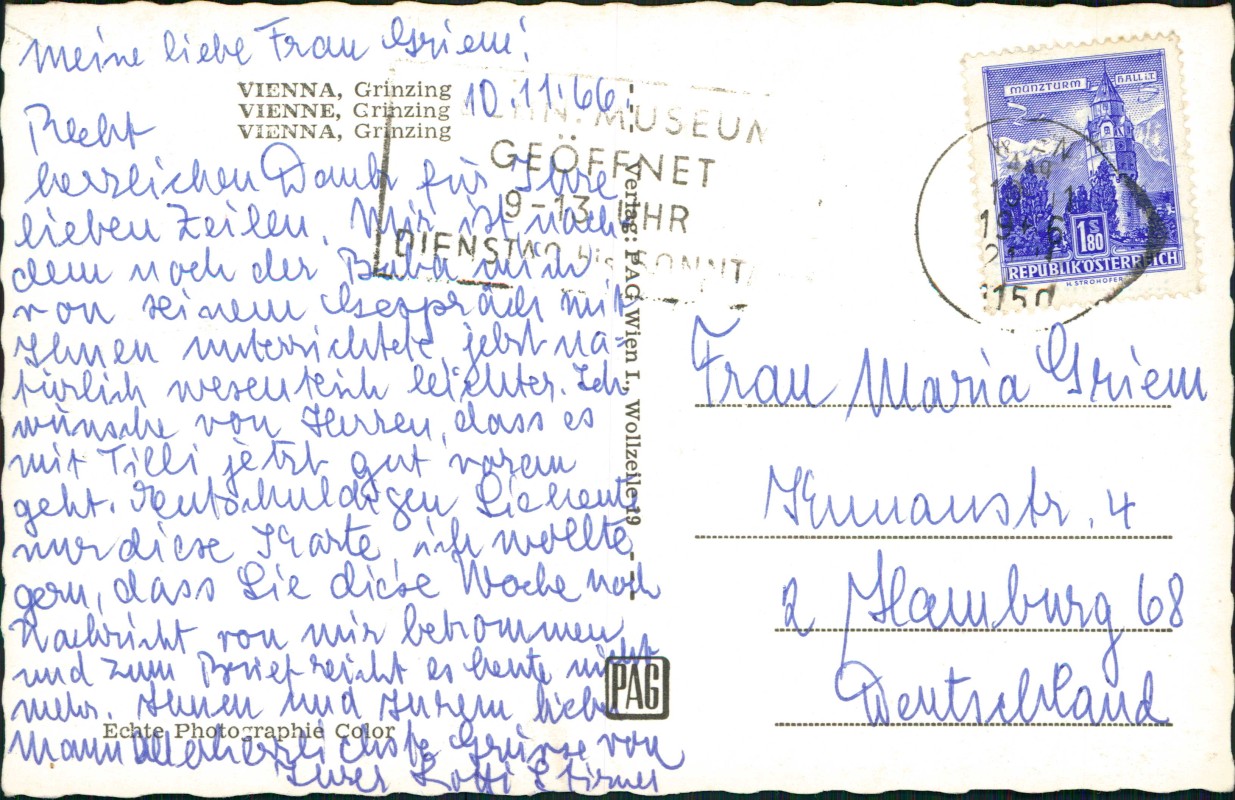 Meine liebe Frau Griem!
VIENNA, Grinzing
VIENNE, Grinzing
VIENNA, Grinzing
10.11.66.
Recht
herzlichen Dank für Ihre
lieben Zeilen. Mir ist nach
dem noch der Bubi mich
von seinem Gespräch mit
Ihnen unterrichtete, jetzt na-
türlich wesentlich leichter. Ich
wünsche von Herzen, dass es
mit Tilli jetzt gut voran
geht. Entschuldigen Sie heute
nur diese Karte, ich wollte
gern, dass Sie diese Woche noch
Nachricht von mir bekommen
und zum Brief reicht es heute nicht
mehr. Ihnen und Ihrem lieben
Mann allerherzlichste Grüsse von
Ihrer Lotti
Echte Photographie Color
Verlag: PAG Wien I., Wollzeile 19
PAG
MUSEUM
GEÖFFNET
9-13 UHR
DIENSTAG bis SONNTAG
MÜNZTURM HALL i.T.
1150
S 1.80
REPUBLIK ÖSTERREICH
H. STROHOFER
Frau Maria Griem
2 Hamburg 68
Deutschland